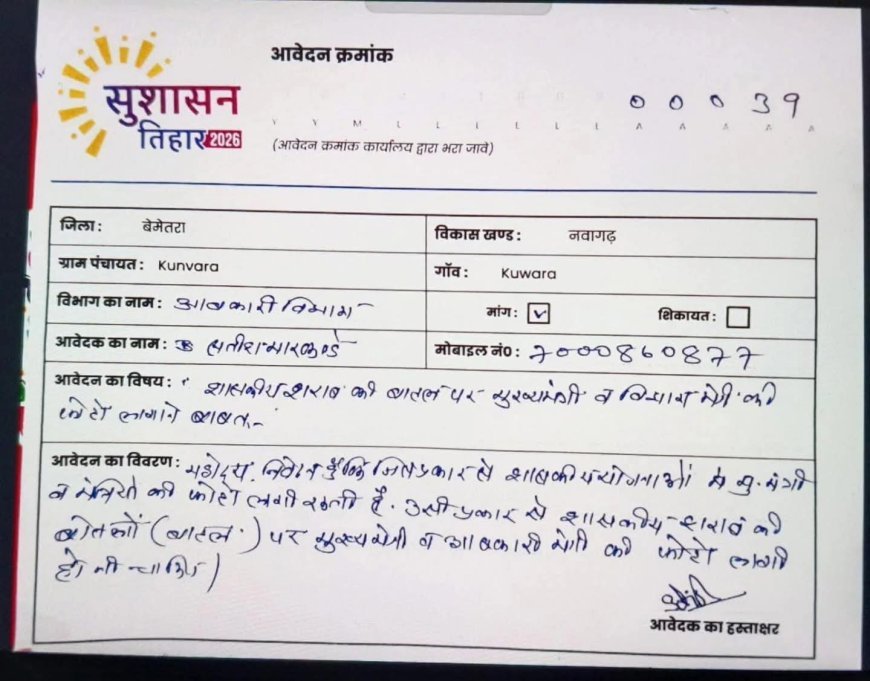 आवेदन क्रमांक
सुशासन
तिहार 2026
0 0 0 39
Y Y M L L L L L L A A A A A
(आवेदन क्रमांक कार्यालय द्वारा भरा जावे)
जिला: बेमेतरा
विकास खण्ड: नवागढ़
ग्राम पंचायत: Kunvara
गाँव: Kuwara
विभाग का नाम: आबकारी विभाग
मांग: ✓ शिकायत:
आवेदक का नाम: सतीश मारकण्डे
मोबाइल नं०: 7000860877
आवेदन का विषय: शासकीय शराब की बाटल पर मुख्यमंत्री व विभाग मंत्री की
फोटो लगाने बाबत्.-
आवेदन का विवरण: महोदय, निवेदन है कि जिस प्रकार से शासकीय योजनाओं में मु. मंत्री
व मंत्रियों की फोटो लगी रहती है. उसी प्रकार से शासकीय शराब की
बोतलों (बाटल) पर मुख्यमंत्री व आबकारी मंत्री की फोटो लगी
होनी चाहिए।
आवेदक का हस्ताक्षर